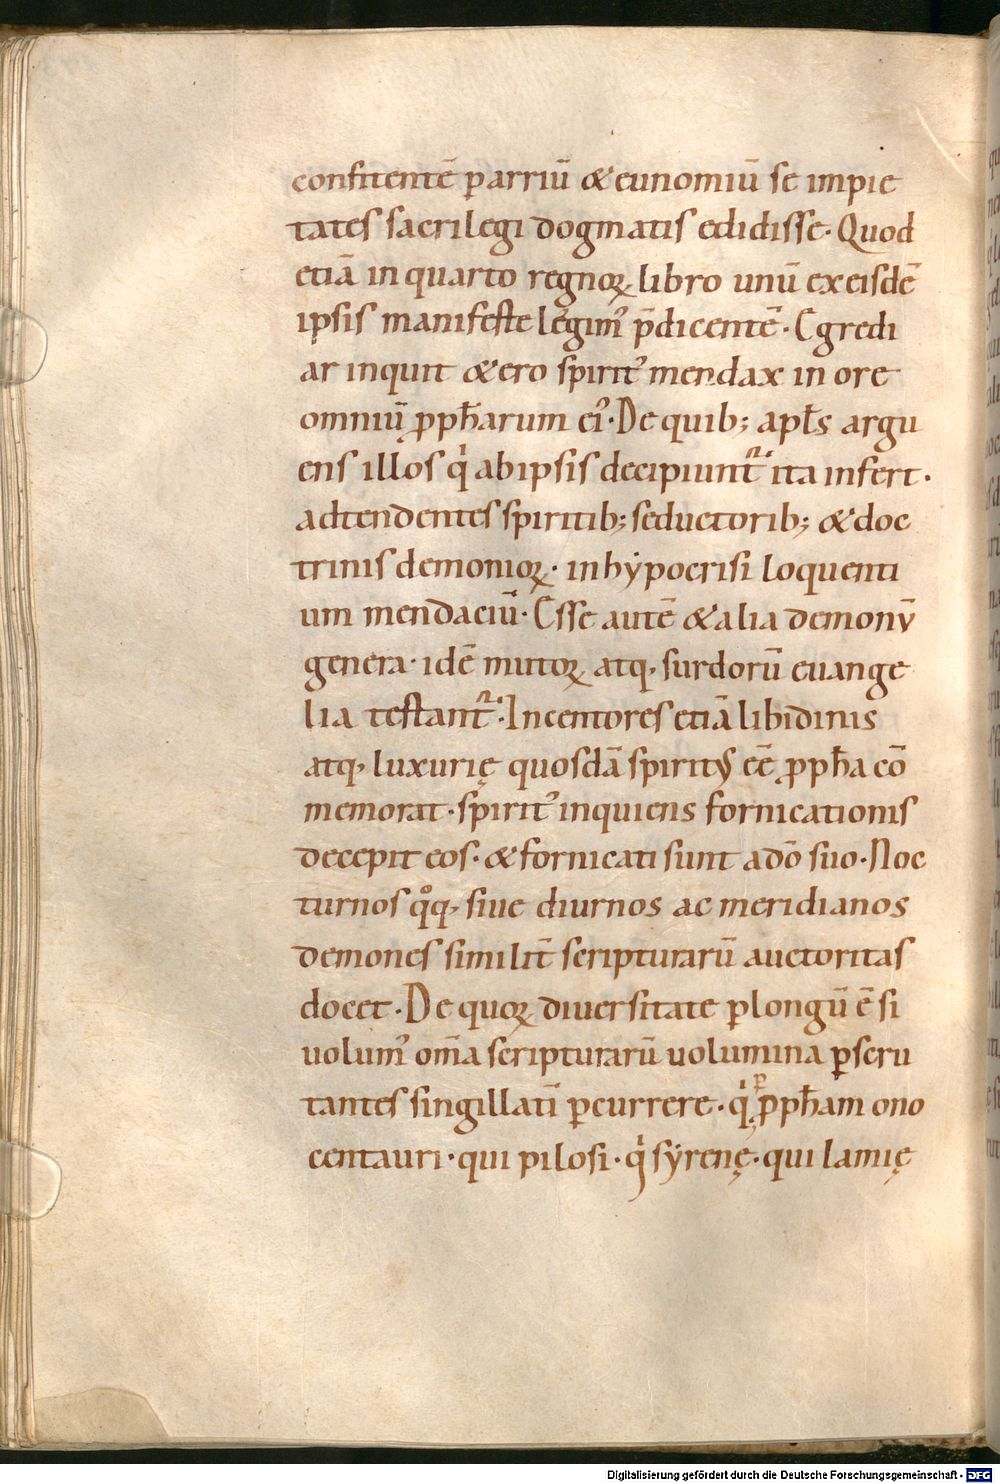 confitentē ꝑ arriū & eunomiū se impie
tates sacrilegi dogmatis edidisse. Quod
etiā in quarto regnoꝝ libro unū ex eisdē
ipsis manifeste legimꝰ p̄dicentē. Egredi
ar inquit & ero spiritꝰ mendax in ore
omniū ꝓph̄arum eiꝰ. De quib; apl̄s argu
ens illos qͥ ab ipsis decipiunt᷑ ita infert.
adtendentes spiritib; seductorib; & doc
trinis demonioꝝ. in hẏpocrisi loquenti
um mendaciū. Esse autē & alia demonū
genera. idē mutoꝝ atq, surdorū euange
lia testant᷑. Incentores etiā libidinis
atq, luxurię quosdā spiritus eē ꝓph̄a cō
memorat. spiritꝰ inquiens fornicationis
decepit eos. & fornicati sunt a dō suo. Noc
turnos qͦq, siue diurnos ac meridianos
demones similit̄ scripturarū auctoritas
docet. De quoꝝ diuersitate ꝑlongū ē si
uolumꝰ om̄a scripturarū uolumina ꝑscru
tantes singillatī ꝑcurrere. qͥ ꝑ ꝓph̄am ono
centauri. qui pilosi. qͥ sẏrenę. qui lamię
Digitalisierung gefördert durch die Deutsche Forschungsgemeinschaft - DFG